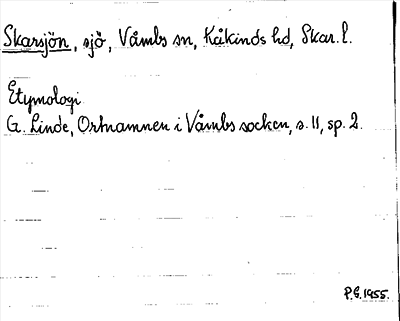 Skarsjön, sjö, Våmbs sn, Kåkinds hd, Skar. l.
Etymologi
G. Linde, Ortnamnen i Våmbs socken, s. 11, sp. 2.
P.G. 1955.